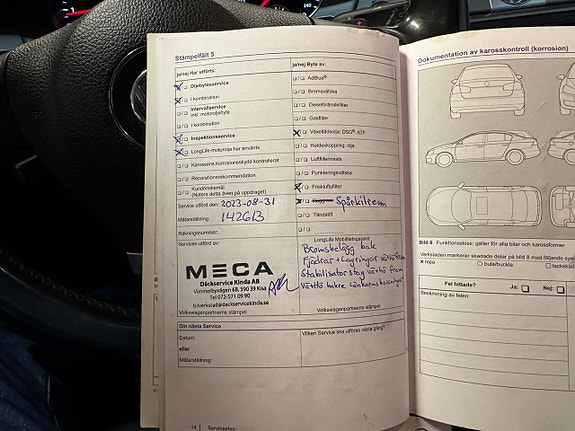 Stämpelfält 5
ja/nej Har utförts:
Oljebytesservice
I kombination
Intervallservice
inkl. motoroljebyte
I kombination
Inspektionsservice
LongLife-motorolja har använts
Karossens korrosionsskydd kontrollerat
Reparationsrekommendation
Kundönskemål
(Notera detta även på uppdraget)
Service utförd den: 2023-08-31
Mätarställning: 142613
Räkningsnummer:
Servicen utförd av:
MECA
Däckservice Kinda AB
Vimmerbyvägen 68, 590 39 Kisa
Tel 072-571 09 90
bilverkstad@dackservicekinda.se
Volkswagenpartnerns stämpel
Din nästa Service
Datum:
eller
Mätarställning:
14 Serviceplan
ja/nej Byte av:
AdBlue®
Bromsvätska
Dieselbränslefilter
Gasfilter
Växellådsolja: DSG®, ATF
Haldexkoppling: olja
Luftfilterinsats
Punkteringsvätska
Friskluftsfilter
Spårkilrem
Tändstift
LongLife Mobilitetsgaranti
Bromsbelägg bak
Fjädrar + Lagringar
Stabilisatorstag
Volkswagenpartnerns stämpel
Vilken Service ska utföras nästa gång?
Dokumentation av karosskontroll (korrosion)
Bild 8 Funktionsskiss: gäller för alla bilar och karossformer
Verkstaden markerar skadade delar på bild 8 med följande
x repa
o bula/buckla
Fel hittade? Ja: Nej:
Beskrivning av felen: